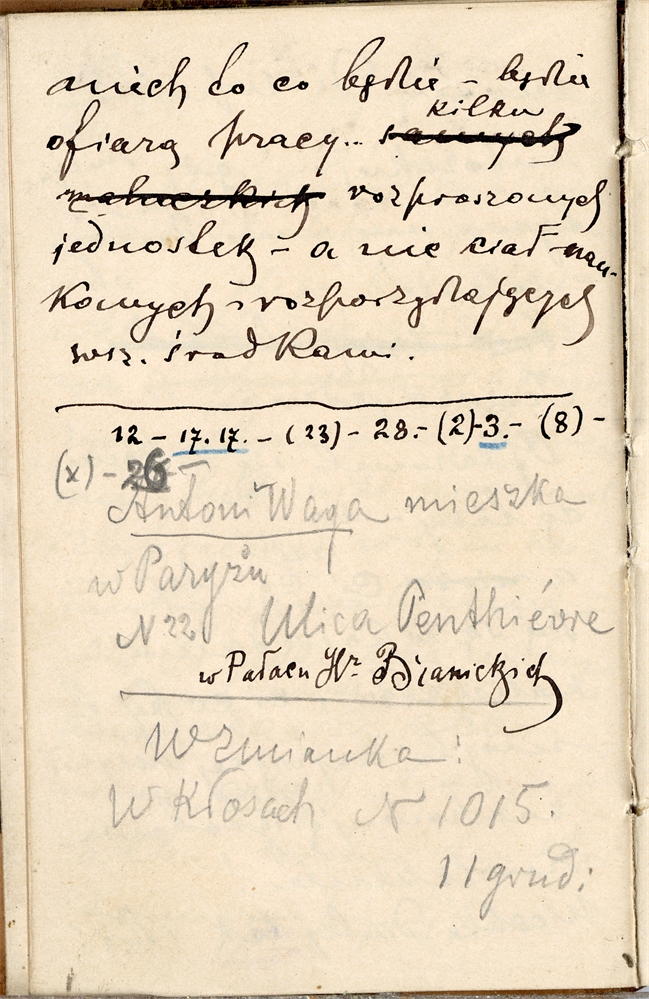 a niech to co będzie – będzie
kilku
ofiarą pracy.. samych
maluczkich rozproszonych
jednostek – a nie ciał nau-
kowych rozporządzających
wsz. środkami.
12 – 17. 17. – (23) – 28. – (2) – 3. – (8) –
(x) – 26 –
Antoni Waga mieszka
w Paryżu
N 22 Ulica Penthièvre
w Pałacu Hr. Branickich
Wzmianka:
W Kłosach N 1015.
11 grud: